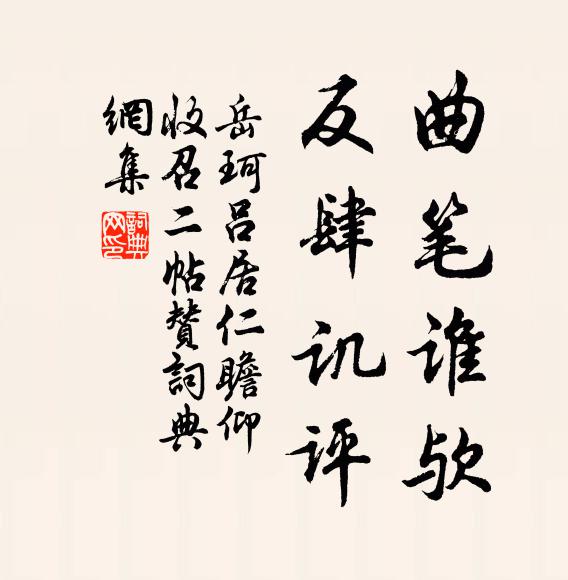 曲笔谁欤
反肆讥评
岳珂吕居仁瞻仰
收召二帖赞詞典
網集
詞典网印